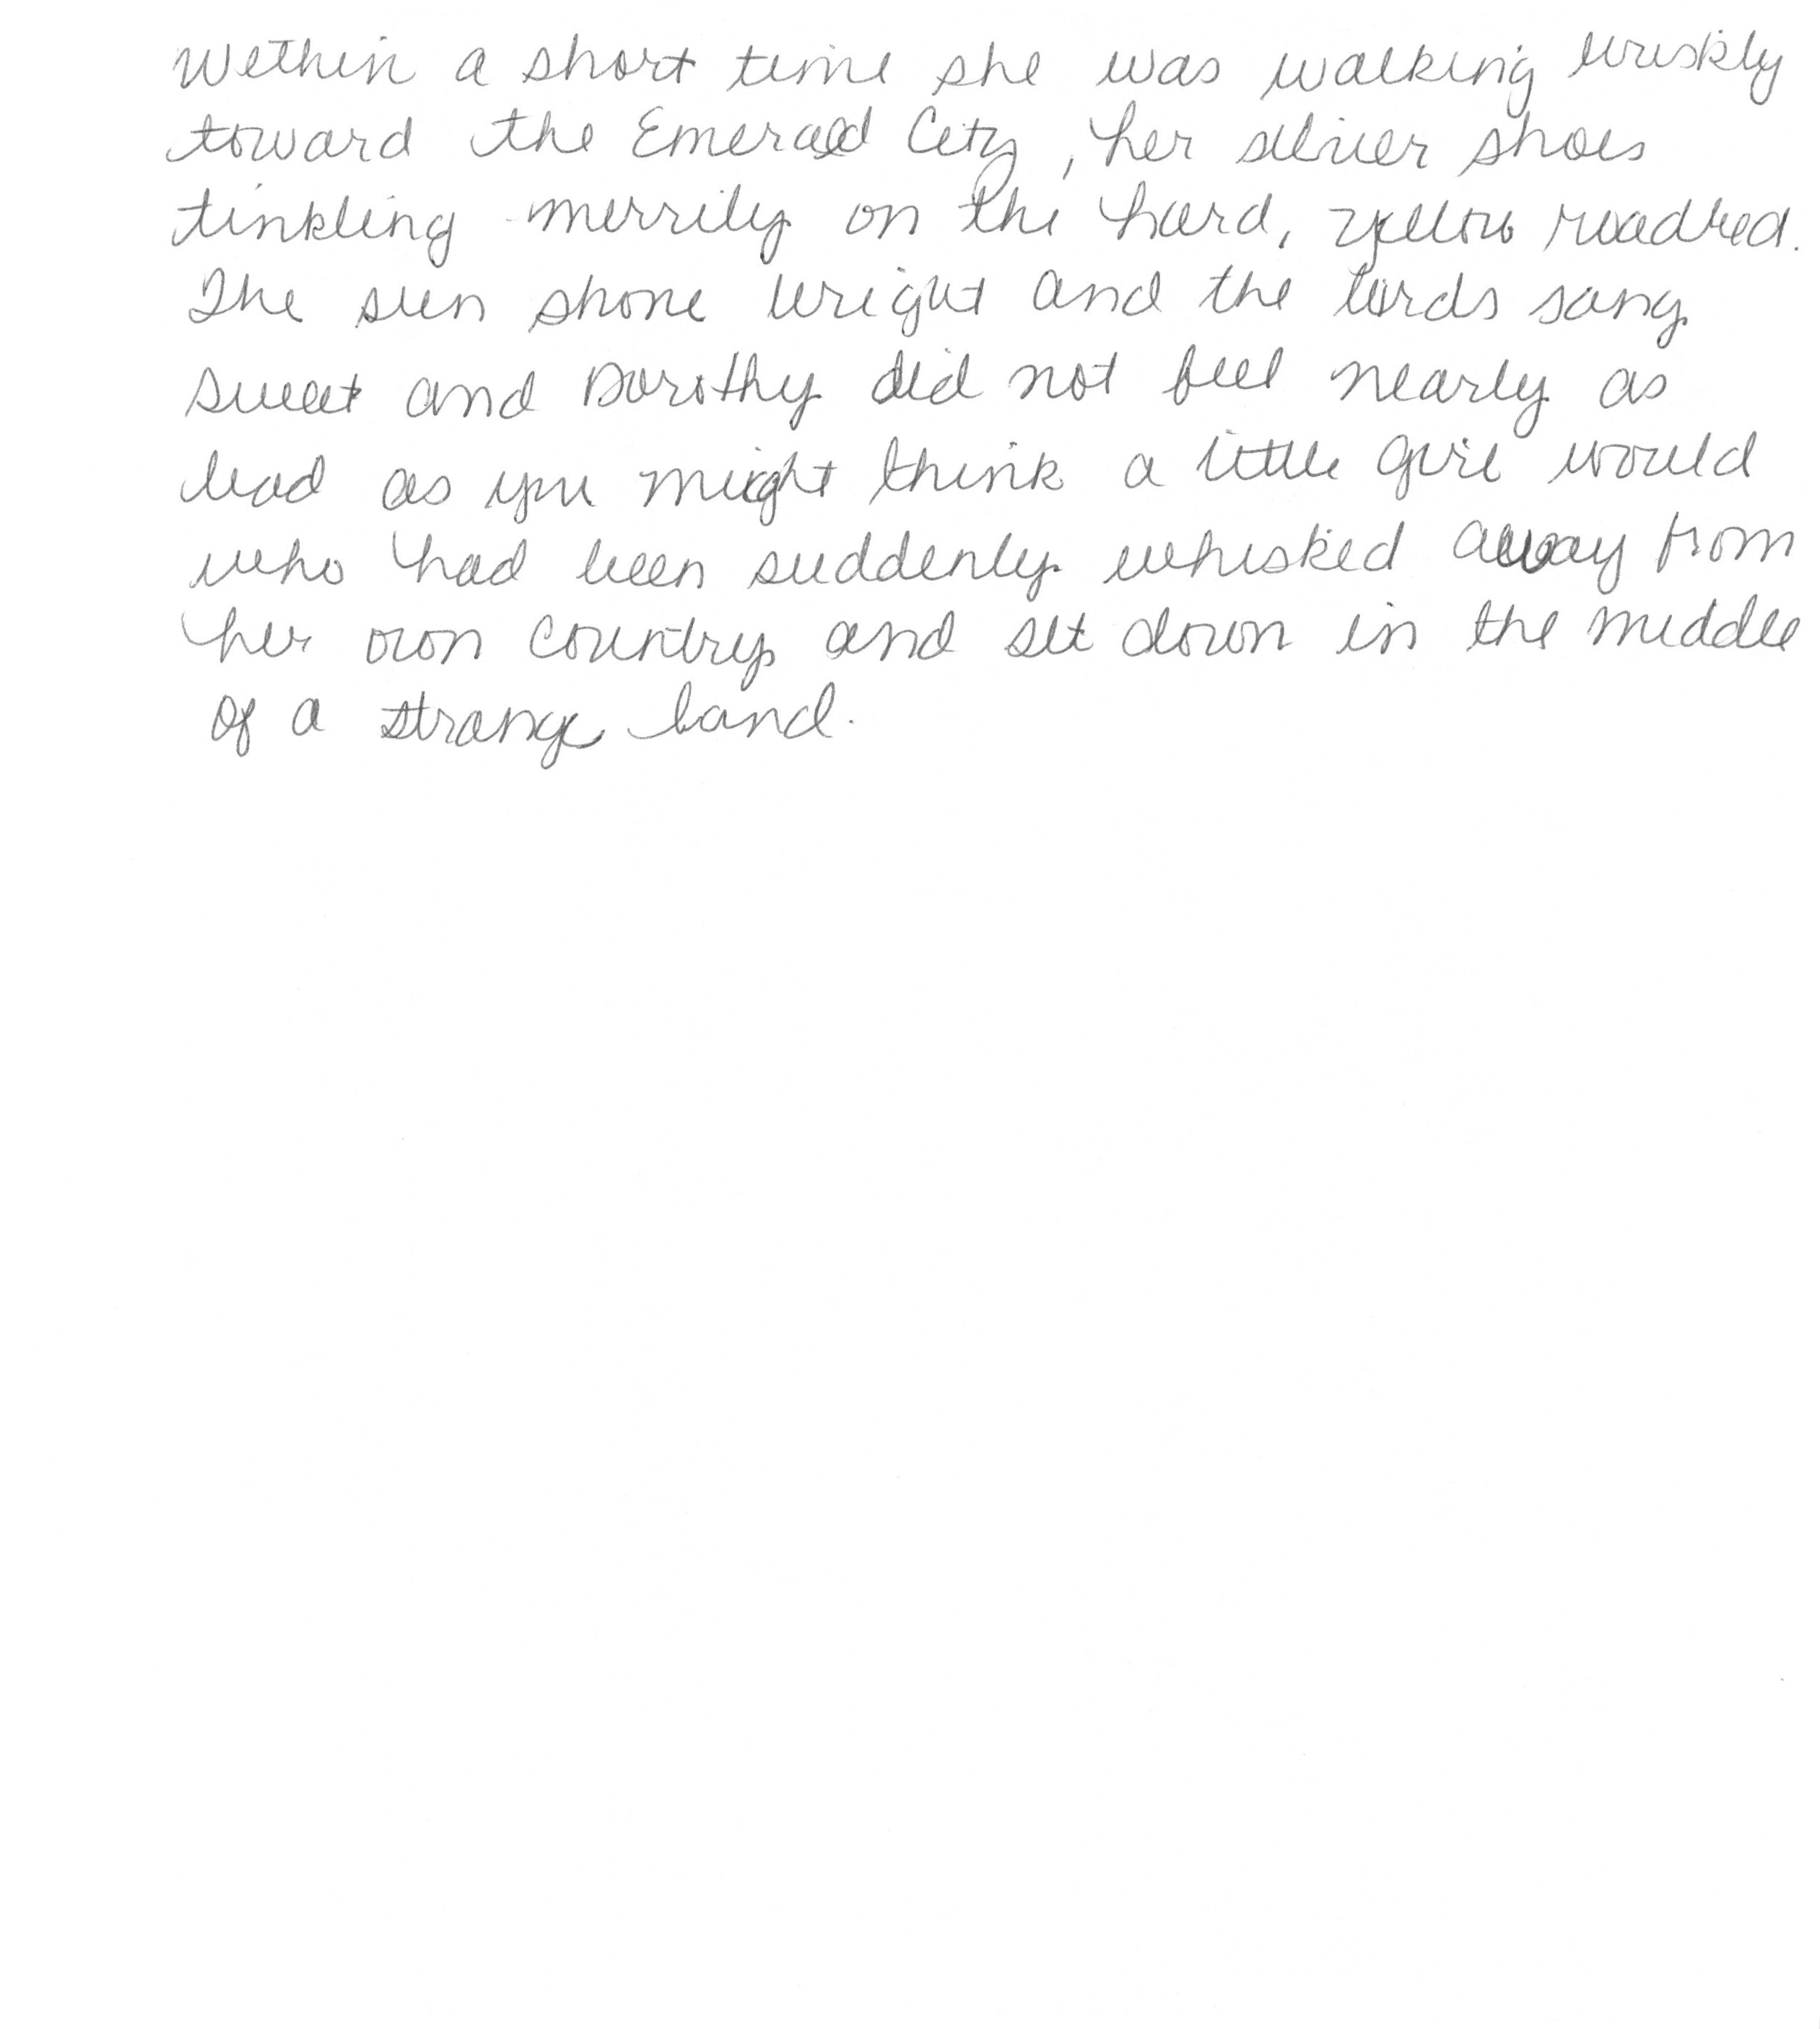 Within a short time she was walking briskly
toward the Emerald City, her silver shoes
tinkling merrily on the hard, yellow roadbed.
The sun shone bright and the birds sang
sweet and Dorothy did not feel nearly as
bad as you might think a little girl would
who had been suddenly whisked away from
her own country and set down in the middle
of a strange land.